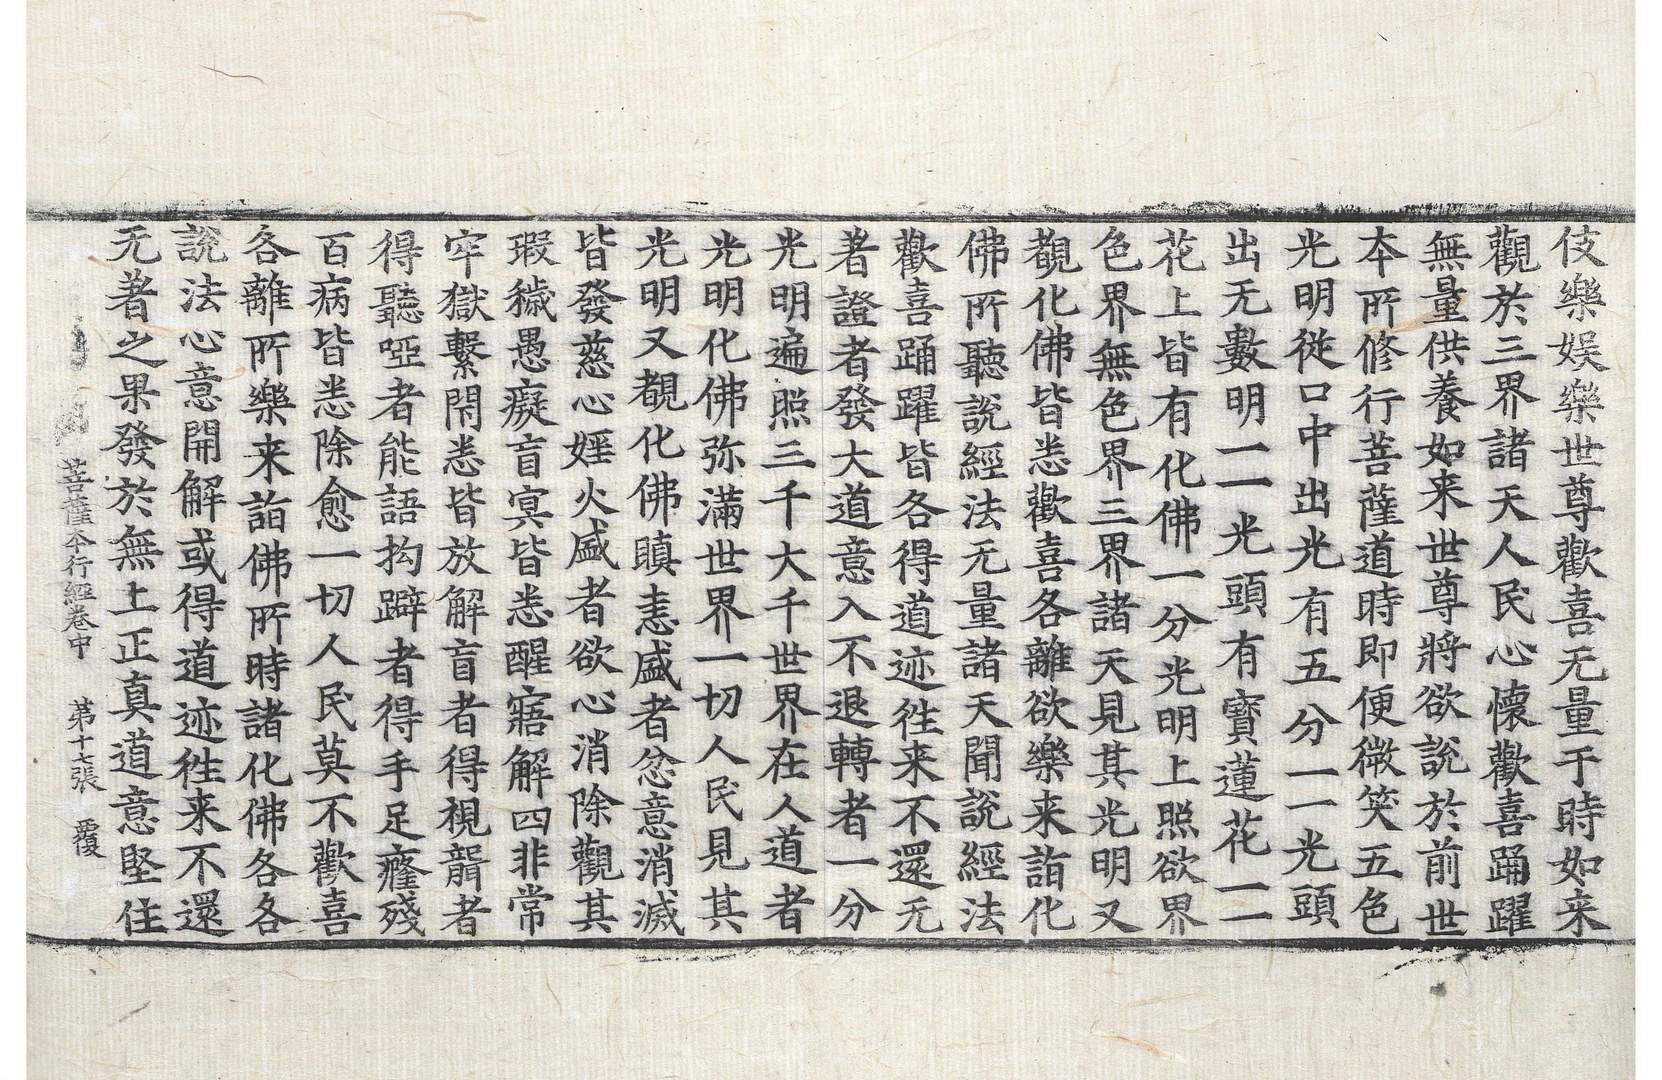 伎樂娛樂世尊歡喜无量于時如来
觀於三界諸天人民心懷歡喜踊躍
無量供養如来世尊將欲說於前世
本所修行菩薩道時即便微笑五色
光明從口中出光有五分一一光頭
出无數明一一光頭有寶蓮花一一
花上皆有化佛一分光明上照欲界
色界無色界三界諸天見其光明又
覩化佛皆悉歡喜各離欲樂来詣化
佛所聽說經法无量諸天聞說經法
歡喜踊躍皆各得道迹徃来不還无
著證者發大道意入不退轉者一分
光明遍照三千大千世界在人道者
光明化佛弥滿世界一切人民見其
光明又覩化佛瞋恚盛者忿意消滅
皆發慈心婬火盛者欲心消除觀其
瑕穢愚癡盲冥皆悉醒寤解四非常
牢獄繫閉悉皆放解盲者得視聾者
得聽啞者能語拘躃者得手足癃殘
百病皆悉除愈一切人民莫不歡喜
各離所樂来詣佛所時諸化佛各各
說法心意開解或得道迹徃来不還
无著之果發於無上正真道意堅住
菩薩本行經卷中 第十七張 覆